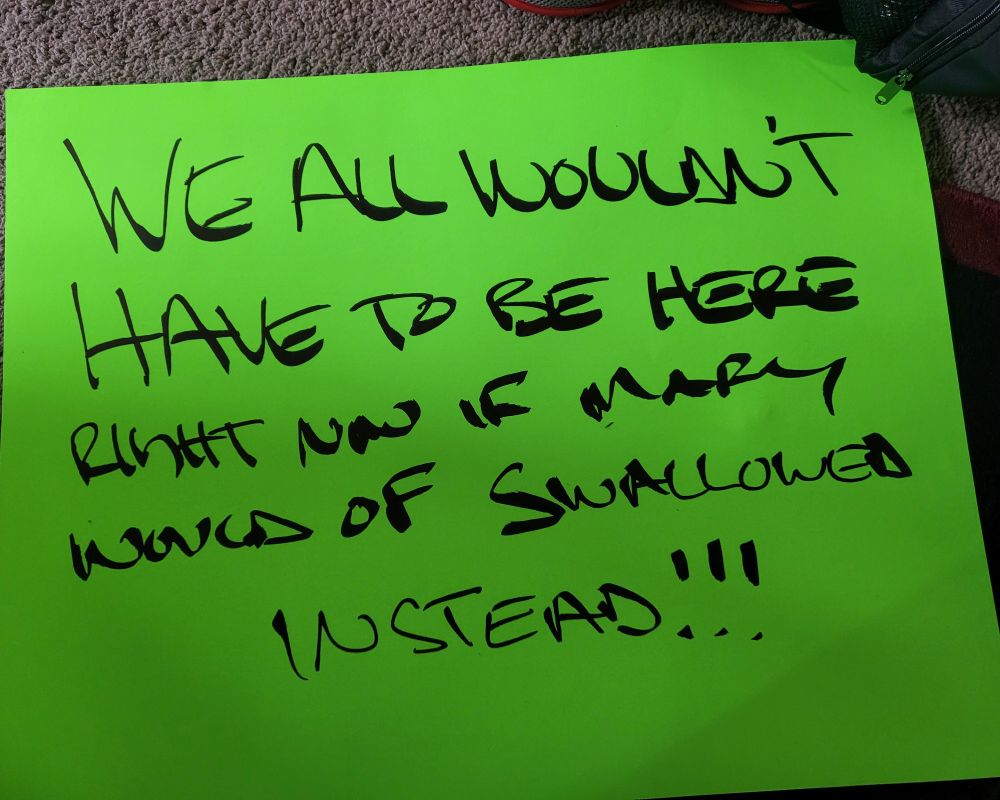 WE ALL WOULDN'T
HAVE TO BE HERE
RIGHT NOW IF MARY
WOULD OF SWALLOWED
INSTEAD!!!